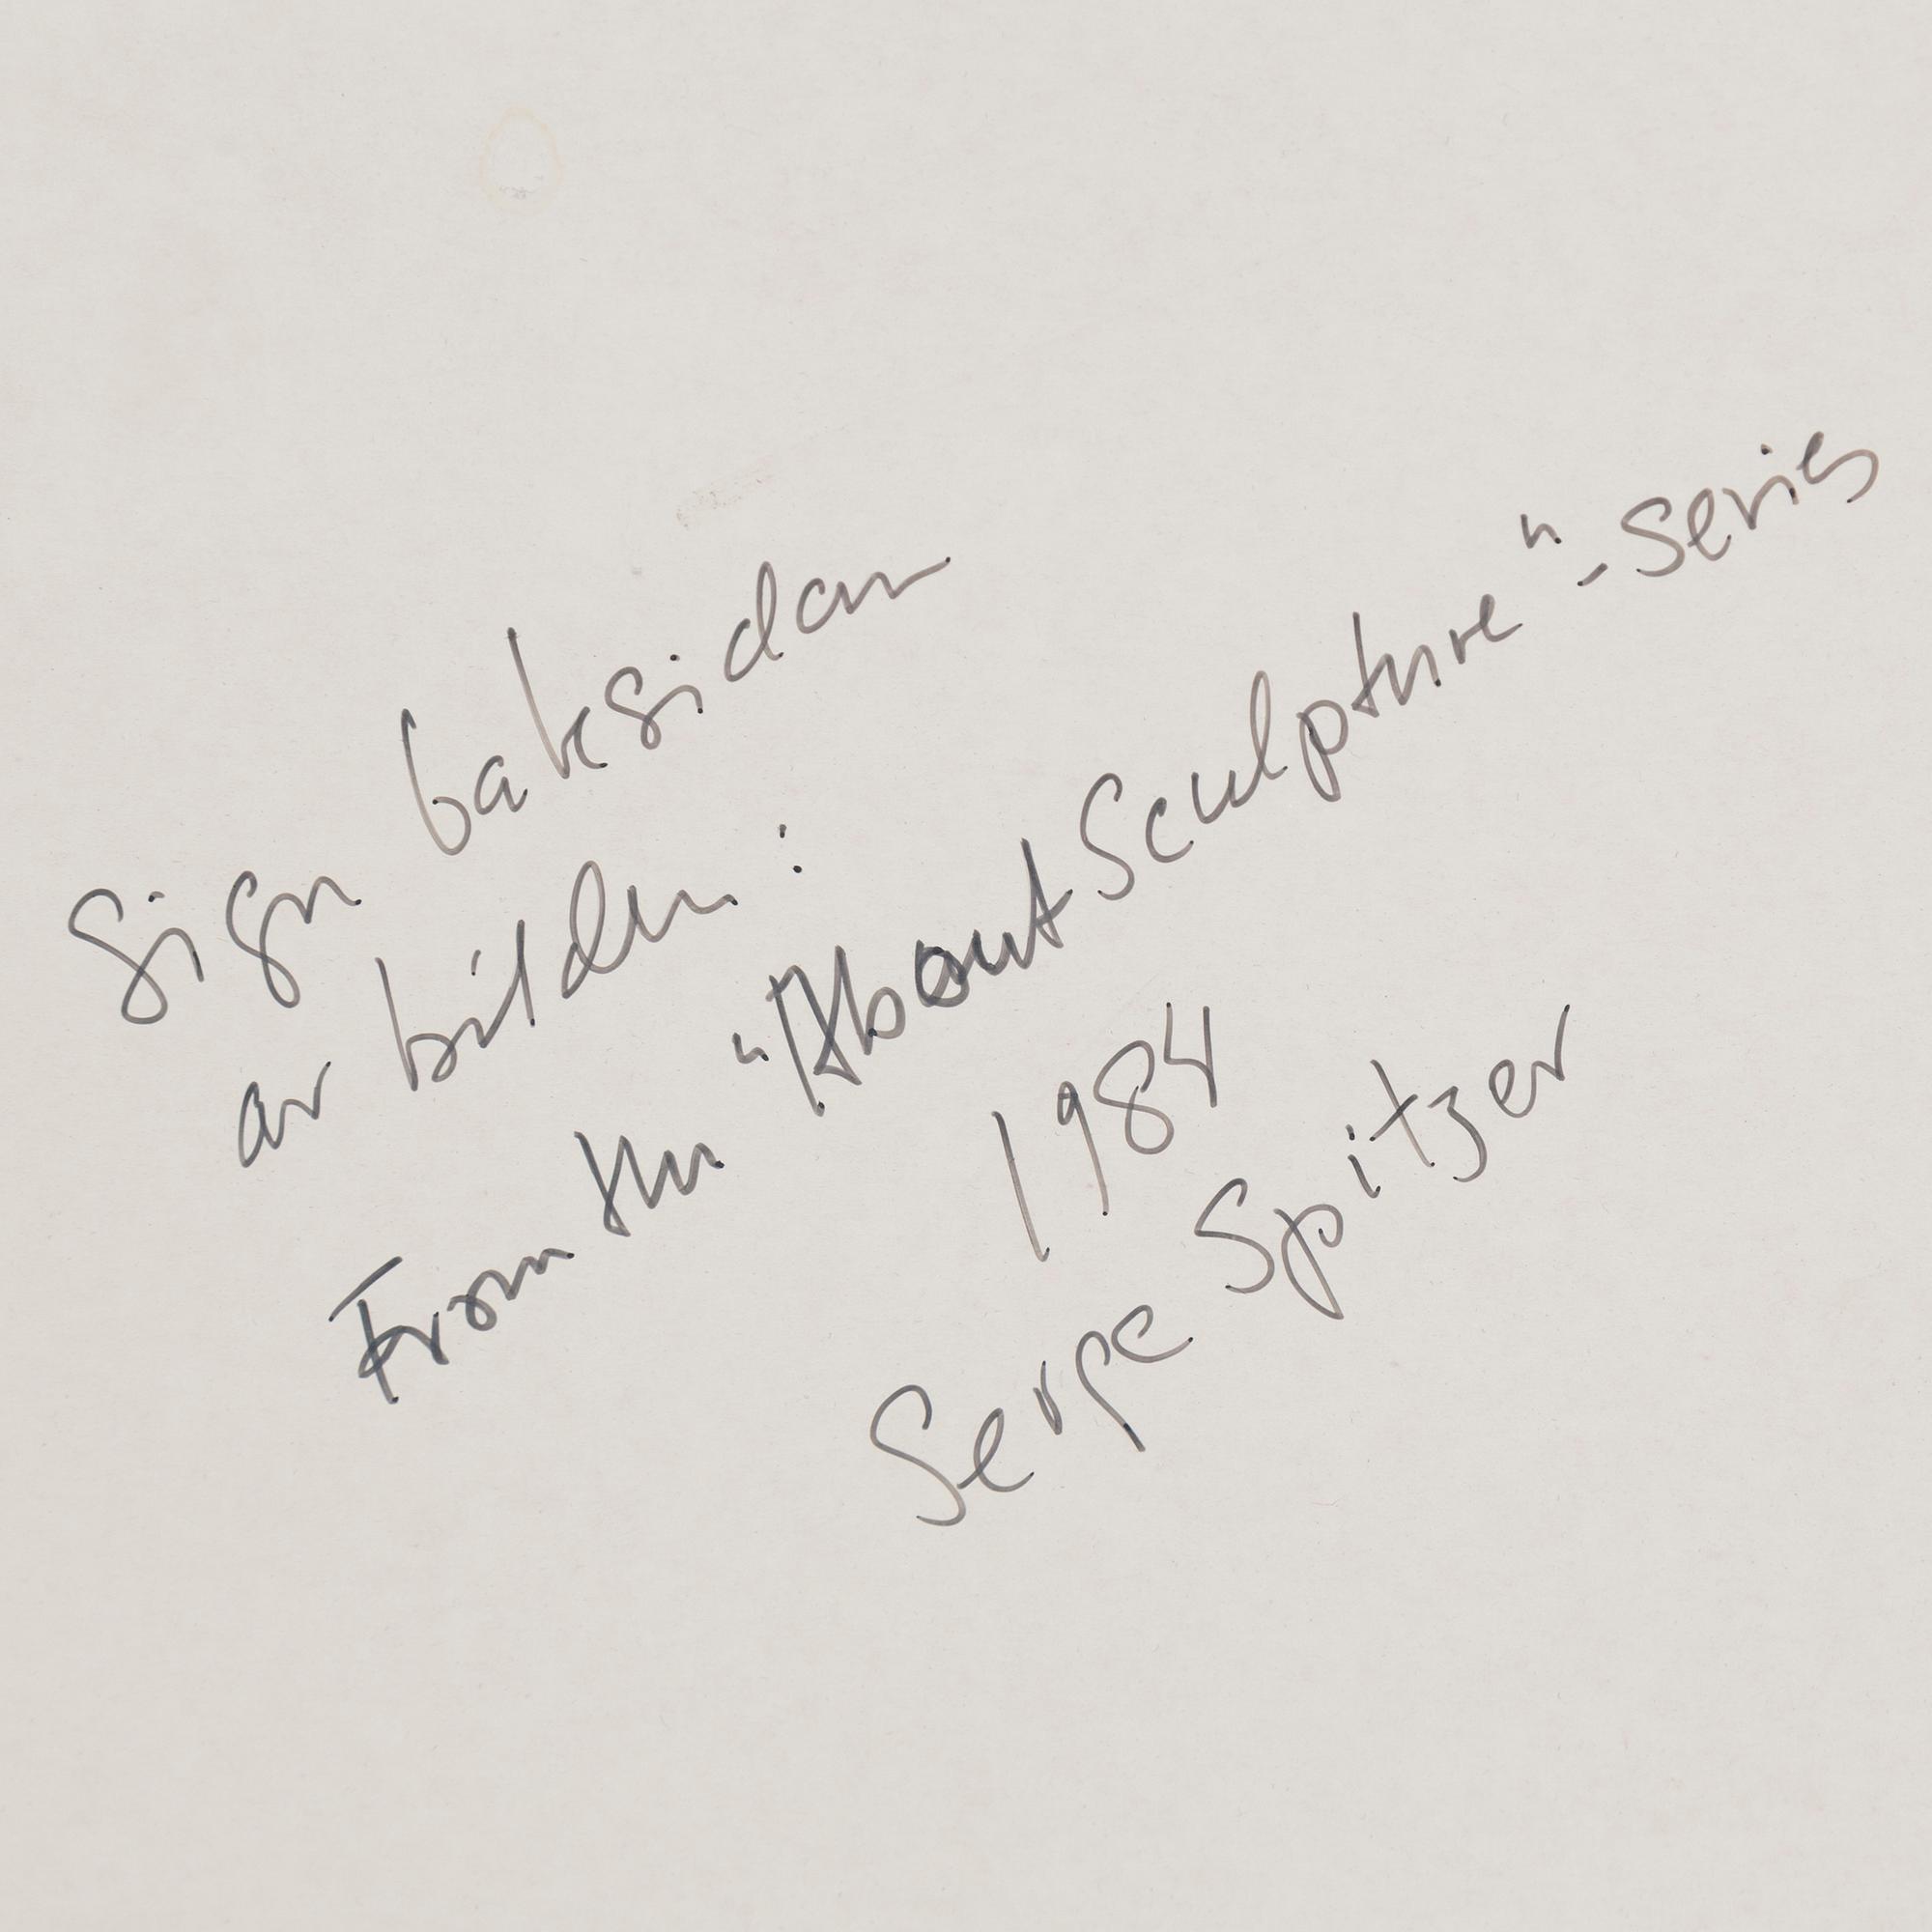 Sign baksidan
av bilden:
From the "About Sculpture"-series
1984
Serge Spitzer